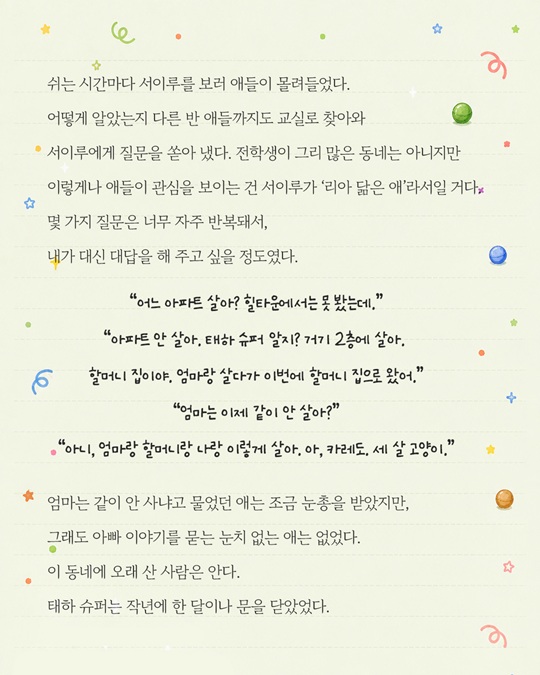 쉬는 시간마다 서이루를 보러 애들이 몰려들었다.
어떻게 알았는지 다른 반 애들까지도 교실로 찾아와
서이루에게 질문을 쏟아 냈다. 전학생이 그리 많은 동네는 아니지만
이렇게나 애들이 관심을 보이는 건 서이루가 ‘리아 닮은 애’라서일 거다.
몇 가지 질문은 너무 자주 반복돼서,
내가 대신 대답을 해 주고 싶을 정도였다.
“어느 아파트 살아? 힐타운에서는 못 봤는데.”
“아파트 안 살아. 태하 슈퍼 알지? 거기 2층에 살아.
할머니 집이야. 엄마랑 살다가 이번에 할머니 집으로 왔어.”
“엄마는 이제 같이 안 살아?”
“아니, 엄마랑 할머니랑 나랑 이렇게 살아. 아, 카레도. 세 살 고양이.”
엄마는 같이 안 사냐고 물었던 애는 조금 눈총을 받았지만,
그래도 아빠 이야기를 묻는 눈치 없는 애는 없었다.
이 동네에 오래 산 사람은 안다.
태하 슈퍼는 작년에 한 달이나 문을 닫았었다.